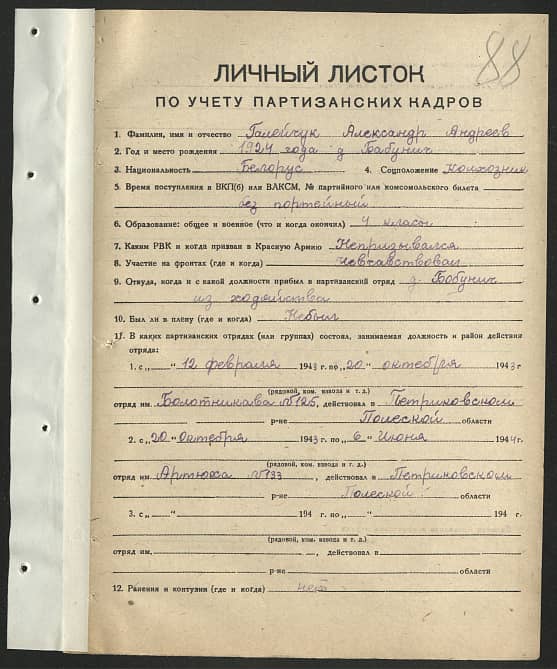 88
ЛИЧНЫЙ ЛИСТОК
ПО УЧЕТУ ПАРТИЗАНСКИХ КАДРОВ
1. Фамилия, имя и отчество Галейчук Александр Андреев
2. Год и место рождения 1924 года д Бабунич
3. Национальность Белорус 4. Соцположение Колхозник
5. Время поступления в ВКП(б) или ВЛКСМ, № партийного или комсомольского билета
без портейный
6. Образование: общее и военное (что и когда окончил) 4 класы
7. Каким РВК и когда призван в Красную Армию Непризывался
8. Участие на фронтах (где и когда)
9. Откуда, когда и с какой должности прибыл в партизанский отряд д Бобунич
из хозяйства
10. Был ли в плену (где и когда) Небыл
11. В каких партизанских отрядах (или группах) состоял, занимаемая должность и район действия
отряда:
1. с „ “ 12 февраля 1943 г. по „20“ октября 1943 г
(рядовой, ком. взвода и т. д.)
отряд им. Болотникава №125, действовал в Петриковском
р-не Полеской области
2. с „20“ Октября 1943 г. по „6“ Июня 1944 г.
(рядовой, ком. взвода и т. д.)
отряд им Артюха №133, действовал в Петриковском
р-не Полеской области
3. с „ “ 194 г. по „ “ 194 г.
(рядовой, ком. взвода и т. д.)
отряд им. , действовал в
р-не области
12. Ранения и контузии (где и когда) нет